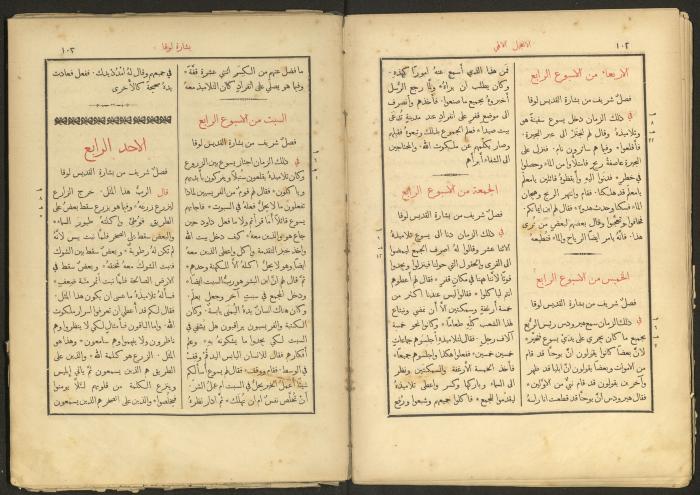 ١٠٢
الانجيل الالهي
الاربعاء من الاسبوع الرابع
فصل شريف من بشارة القديس لوقا
في ذلك الزمان دخل يسوع سفينة هو
وتلاميذه وقال لهم لنجتز الى عبر البحيرة.
فأقلعوا* وفيما هم سائرون نام. فنزل على
البحيرة عاصفة ريح فامتلأوا من الماء وحصلوا
في خطر* فدنوا اليه وايقظوه قائلين يا معلم
يا معلم قد هلكنا* فقام وانتهر الريح وهيجان
الماء فسكنا وحدث هدوء* فقال لهم اين ايمانكم.
فخافوا وتعجبوا وقال بعضهم لبعض من ترى
هذا. فانه يأمر ايضا الرياح والماء فتطيعه*
الخميس من الاسبوع الرابع
فصل شريف من بشارة القديس لوقا
في ذلك الزمان سمع هيرودس رئيس الربع
بجميع ما كان يجري على يدي يسوع فتحير*
لان بعضا كانوا يقولون ان يوحنا قد قام
من الاموات وبعضا يقولون ان ايليا قد ظهر
وآخرين يقولون قد قام نبي من الاولين*
فقال هيرودس ان يوحنا قد قطعت انا رأسه
فمن هذا الذي أسمع عنه امورا كهذه.
وكان يطلب ان يراه* ولما رجع الرسل
أخبروه بجميع ما صنعوا. فأخذهم وانصرف
الى موضع قفر على انفراد عند مدينة تدعى
بيت صيدا* فعلم الجموع بذلك وتبعوه فقبلهم
وصار يكلمهم عن ملكوت الله. والمحتاجين
الى الشفاء أبرأهم
الجمعة من الاسبوع الرابع
فصل شريف من بشارة القديس لوقا
في ذلك الزمان دنا الى يسوع تلاميذه
الاثنا عشر وقالوا له اصرف الجمع ليمضوا
الى القرى والحقول التي حولنا فينزلوا ويجدوا
قوتا لاننا ههنا في مكان قفر* فقال لهم اعطوهم
انتم ليأكلوا* فقالوا ليس عندنا اكثر من
خمسة ارغفة وسمكتين الا أن نمضي ونبتاع
لهذا الشعب كله طعاما* وكانوا نحو خمسة
آلاف رجل. فقال لتلاميذه أجلسوهم جماعات
خمسين خمسين* ففعلوا هكذا واجلسوهم جميعا*
فأخذ الخمسة الارغفة والسمكتين ونظر
الى السماء وباركها وكسر واعطى تلاميذه
ليقدموا للجمع* فاكلوا جميعهم وشبعوا ورفع
بشارة لوقا
١٠٣
ما فضل عنهم من الكسر اثنتي عشرة قفة*
وفيما هو يصلي على انفراد كان التلاميذ معه
السبت من الاسبوع الرابع
فصل شريف من بشارة القديس لوقا
في ذلك الزمان اجتاز يسوع بين الزروع
وكان تلاميذه يقلعون سنبلا ويفركون بأيديهم
ويأكلون* فقال لهم قوم من الفريسيين لماذا
تفعلون ما لا يحل فعله في السبوت* فاجابهم
يسوع قائلا أما قرأتم ولا ما فعل داود حين
جاع هو والذين معه* كيف دخل بيت الله
واخذ خبز التقدمة وأكل واعطى الذين معه
ايضا وهو لا يحل أكله الا للكهنة وحدهم*
ثم قال لهم ان ابن البشر هو رب السبت ايضا*
ودخل المجمع في سبت آخر وجعل يعلم.
وكان هناك انسان يده اليمنى يابسة* وكان
الكتبة والفريسيون يراقبونه هل يشفي في
السبت لكي يجدوا ما يشكونه به* وعلم
افكارهم فقال للانسان اليابس اليد قم وقف
في الوسط. فقام ووقف* فقال لهم يسوع أسألكم
أن تخلص نفس ام ان تهلك* ثم ادار نظره
في جميعهم وقال له امدد يدك. ففعل فعادت
يده صحيحة كالأخرى
الاحد الرابع
فصل شريف من بشارة القديس لوقا
قال الرب هذا المثل. خرج الزارع
ليزرع زرعه* وفيما هو يزرع سقط بعض على
الطريق فوطئ وأكلته طيور السماء*
والبعض سقط على الصخر فلما نبت يبس لانه
لم تكن له رطوبة* وبعض سقط بين الشوك
فنبت الشوك معه فخنقه* وبعض سقط في
الارض الصالحة فلما نبت أثمر مئة ضعف*
فسأله تلاميذه ما عسى ان يكون هذا المثل*
فقال لكم قد أعطي ان تعرفوا اسرار ملكوت
الله. واما الباقون فبأمثال لكي لا ينظروا وهم
ناظرون ولا يفهموا وهم سامعون* وهذا هو
المثل. الزرع هو كلمة الله* والذين على
الطريق هم الذين يسمعون ثم يأتي ابليس
وينزع الكلمة من قلوبهم لئلا يؤمنوا
فيخلصوا* والذين على الصخر هم الذين يسمعون